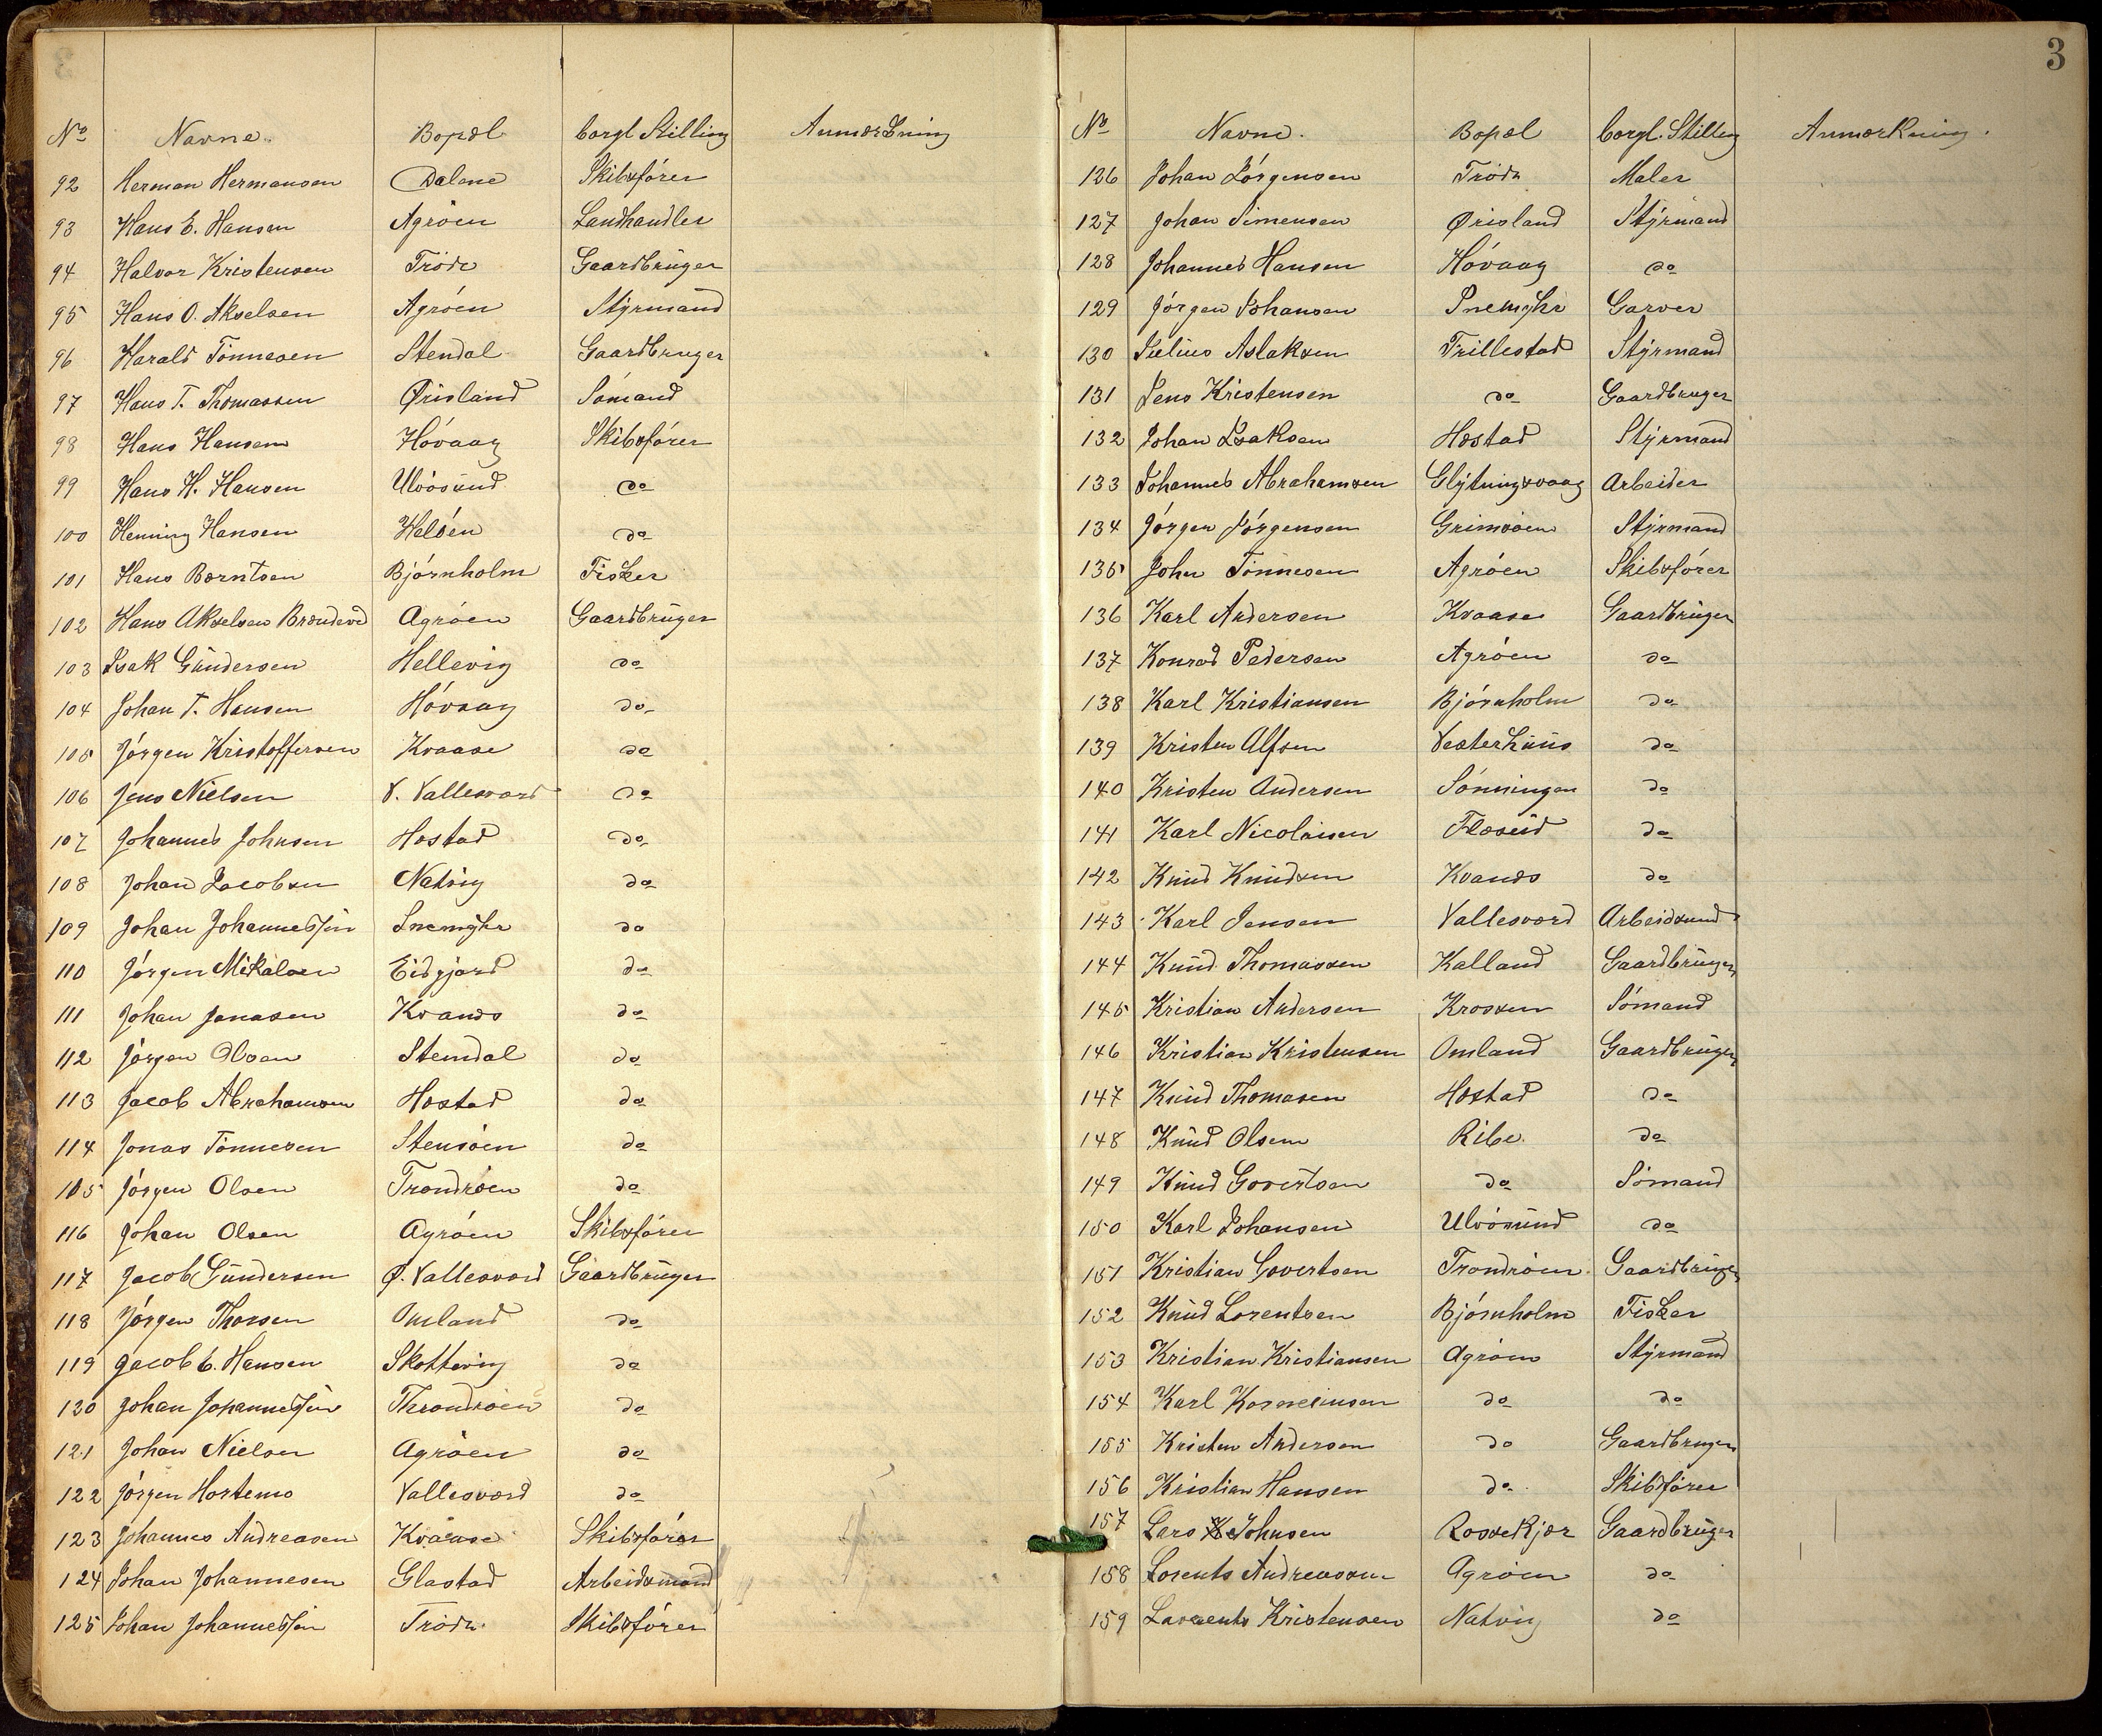 No Navne. Bopæl borgl Stilling Anmærkning
92 Herman Hermansen Dalene Skibsfører
93 Hans E. Hansen Agrøen Landhandler
94 Halvor Kristensen Trøde Gaardbrüger
95 Hans O. Akselsen Agrøen Stýrmand
96 Harald Tønnesen Stendal Gaardbruger
97 Hans T. Thomassen Øisland Sømand
98 Hans Hansen Høvaag Skibsfører
99 Hans H. Hansen Ulvøsund do
100 Henning Hansen Heløen do
101 Hans Berntsen Bjørnholm Fisker
102 Hans Akselsen Agrøen Gaardbrüger
103 Isak Gündersen Hellevig do
104 Johan T. Hansen Høvaag do
105 Jørgen Kristoffersen Kvaase do
106 Jens Nielsen V. Vallesværd do
107 Johannes Johnsen Hæstad do
108 Johan Jacobsen Natvig do
109 Johan Johannessen Snemyhr do
110 Jørgen Mikalsen Eidjord do
111 Johan Jonasen Kvanes do
112 Jørgen Olsen Stendal do
113 Jacob Abrahamsen Hæstad do
114 Jonas Tønnesen Stensøen do
115 Jørgen Olsen Trondrøen do
116 Johan Olsen Agrøen Skibsfører
117 Jacob Gündersen Ø. Vallesværd Gaardbrüger
118 Jørgen Thorsen Omland do
119 Jacob E. Hansen Skottevig do
120 Johan Johannessen Throndrøen do
121 Johan Nielsen Agrøen do
122 Jørgen Hortemo Vallesværd do
123 Johannes Andreasen Kvaase Skibsfører
124 Johan Johannesen Glastad Arbeidsmand
125 Johan Johannessen Trøde Skibsfører
3
No Navne. Bopæl borgl. Stilling Anmærkning.
126 Johan Jørgensen Trøde Maler
127 Johan Simensen Øisland Stýrmand
128 Johannes Hansen Høvaag do
129 Jørgen Johansen Snemyhr Garver
130 Julius Aslaksen Trillestad Stýrmand
131 Jens Kristensen do Gaardbruger
132 Johan Isaksen Hæstad Stýrmand
133 Johannes Abrahamsen Glýtningsvaag Arbeider
134 Jørgen Jørgensen Grimsøen Stýrmand
135 John Tønnesen Agrøen Skibsfører
136 Karl Andersen Kvaase Gaardbrüger
137 Konrad Pedersen Agrøen do
138 Karl Kristiansen Bjørnholm do
139 Kristen Alfsen Vesterhüüs do
140 Kristen Andersen Sønningen do
141 Karl Nicolaisen Fløseid do
142 Knüd Knüdsen Kvanes do
143 Karl Jensen Vallesværd Arbeidsmand
144 Knüd Thomassen Kalland Gaardbrüger
145 Kristian Andersen Krossen Sømand
146 Kristian Kristensen Omland Gaardbrüger
147 Knüd Thomasen Hæstad do
148 Knüd Olsen Ribe. do
149 Knüd Govertsen do Sømand
150 Karl Johansen Ulvøsünd do
151 Kristian Govertsen Trondrøen Gaardbrüger
152 Knüd Lorentsen Bjørnholm Fisker
153 Kristian Kristiansen Agrøen Stýrmand
154 Karl Korneliusen do do
155 Kristen Andersen do Gaardbruger
156 Kristian Hansen do Skibsfører
157 Lars Johnsen Rossekjær Gaardbrüger
158 Lorents Andreassen Agrøen do
159 Laurents Kristensen Natvig do